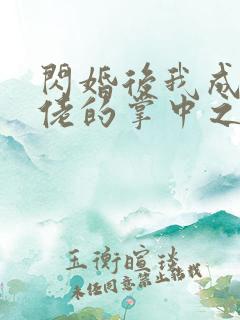 閃婚後我成
佬的掌中之
玉衡暄琰
未經同意禁止轉載